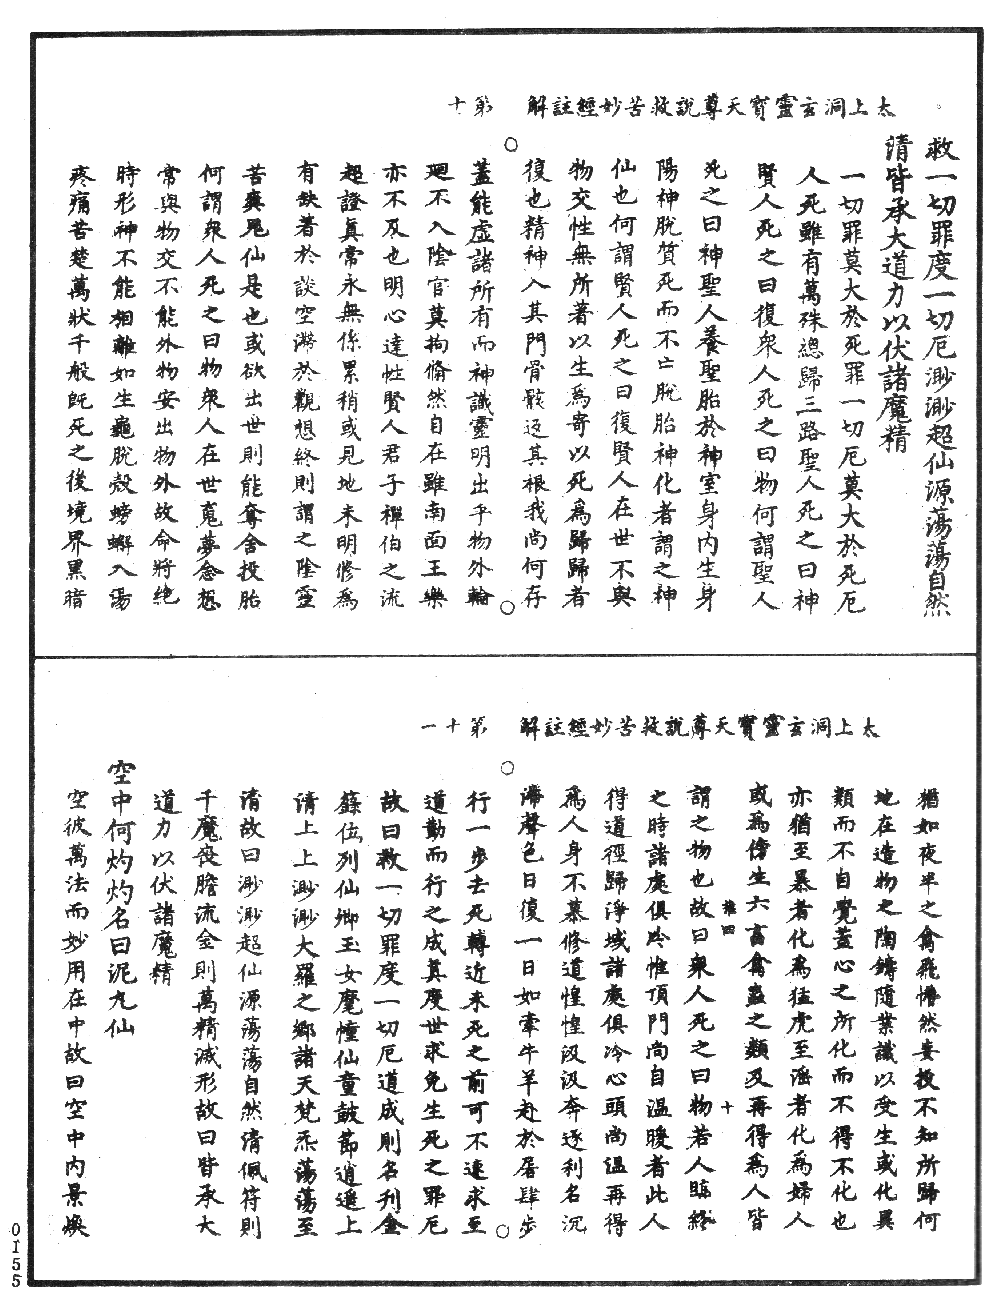 太上洞玄靈寶天尊說救苦妙經註解　第十
救一切罪度一切厄渺渺超仙源蕩蕩自然
清皆承大道力以伏諸魔精
一切罪莫大於死罪一切厄莫大於死厄
人死雖有萬殊總歸三路聖人死之曰神
賢人死之曰復衆人死之曰物何謂聖人
死之曰神聖人養聖胎於神室身内生身
陽神脫質死而不亡脫胎神化者謂之神
仙也何謂賢人死之曰復賢人在世不與
物交性無所著以生爲寄以死爲歸歸者
復也精神入其門骨骸返其根我尚何存
蓋能虛諸所有而神識靈明出乎物外輪
廻不入陰官莫拘翛然自在雖南面王樂
亦不及也明心達性賢人君子禪伯之流
超證眞常永無係累稍或見地未明修爲
有缺著於談空滯於觀想終則謂之陰靈
苦爽鬼仙是也或欲出世則能奪舍投胎
何謂衆人死之曰物衆人在世寬夢念想
常與物交不能外物安出物外故命將絶
時形神不能相離如生龜脫殼螃蠏入湯
疼痛苦楚萬狀千般旣死之後境界黑暗
太上洞玄靈寶天尊說救苦妙經註解　第十一
猶如夜半之禽飛慞然妄投不知所歸何
地在造物之陶鑄隨業識以受生或化異
類而不自覺蓋心之所化而不得不化也
亦猶至暴者化爲猛虎至淫者化爲婦人
或爲傍生六畜禽蟲之類及再得爲人皆
推四　十
謂之物也故曰衆人死之曰物若人臨終
之時諸處俱冷惟頂門尚自溫暖者此人
得道徑歸淨域諸處俱冷心頭尚溫再得
爲人身不慕修道惶惶汲汲奔逐利名沉
滯聲色日復一日如牽牛羊赴於屠肆步
行一步去死轉近未死之前可不速求至
道勤而行之成眞度世求免生死之罪厄
故曰救一切罪度一切厄道成則名刋金
籙位列仙卿玉女麾幢仙童皷節逍遥上
清上上渺渺大羅之鄉諸天梵炁蕩蕩至
清故曰渺渺超仙源蕩蕩自然清佩符則
千魔喪膽流金則萬精滅形故曰皆承大
道力以伏諸魔精
空中何灼灼名曰泥丸仙
空彼萬法而妙用在中故曰空中内景煥
0155